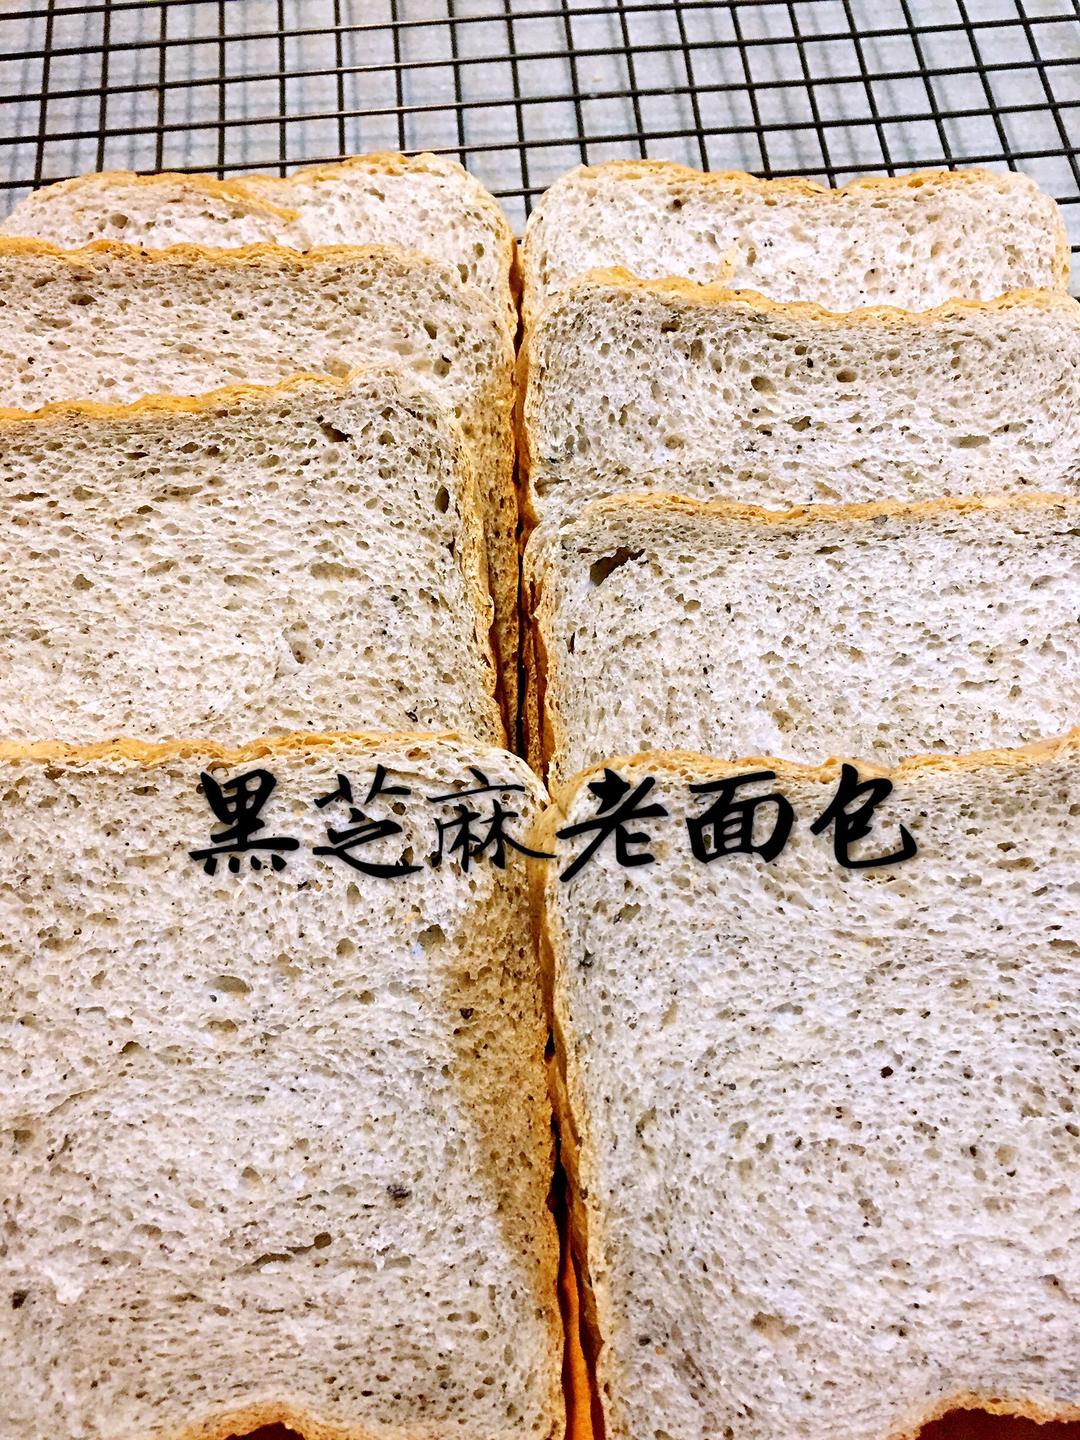 黑芝麻老面包